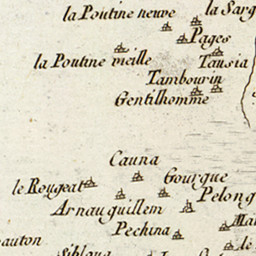 la Poutine neuve
la Sarg
Pages
la Poutine vieille
Tausia
Tambourin
Gentilhomme
Cauna
le Rougeat
Gourgue
Pelong
Arnauguillem
Pechina
auton
Sibloug